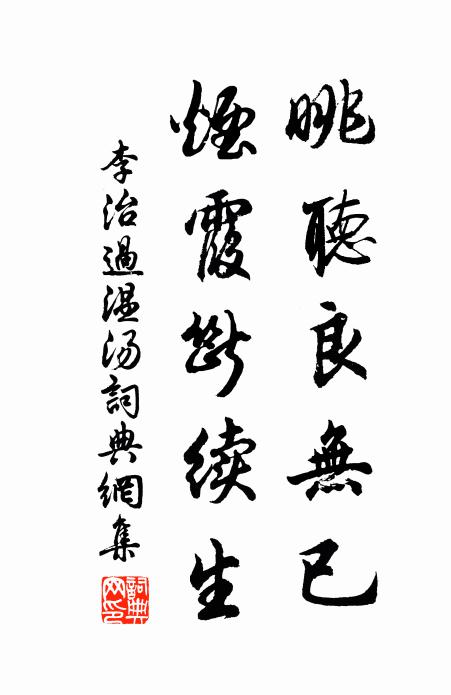 眺聽良無已
煙霞斷續生
李治過温湯詞典網集
詞典網印